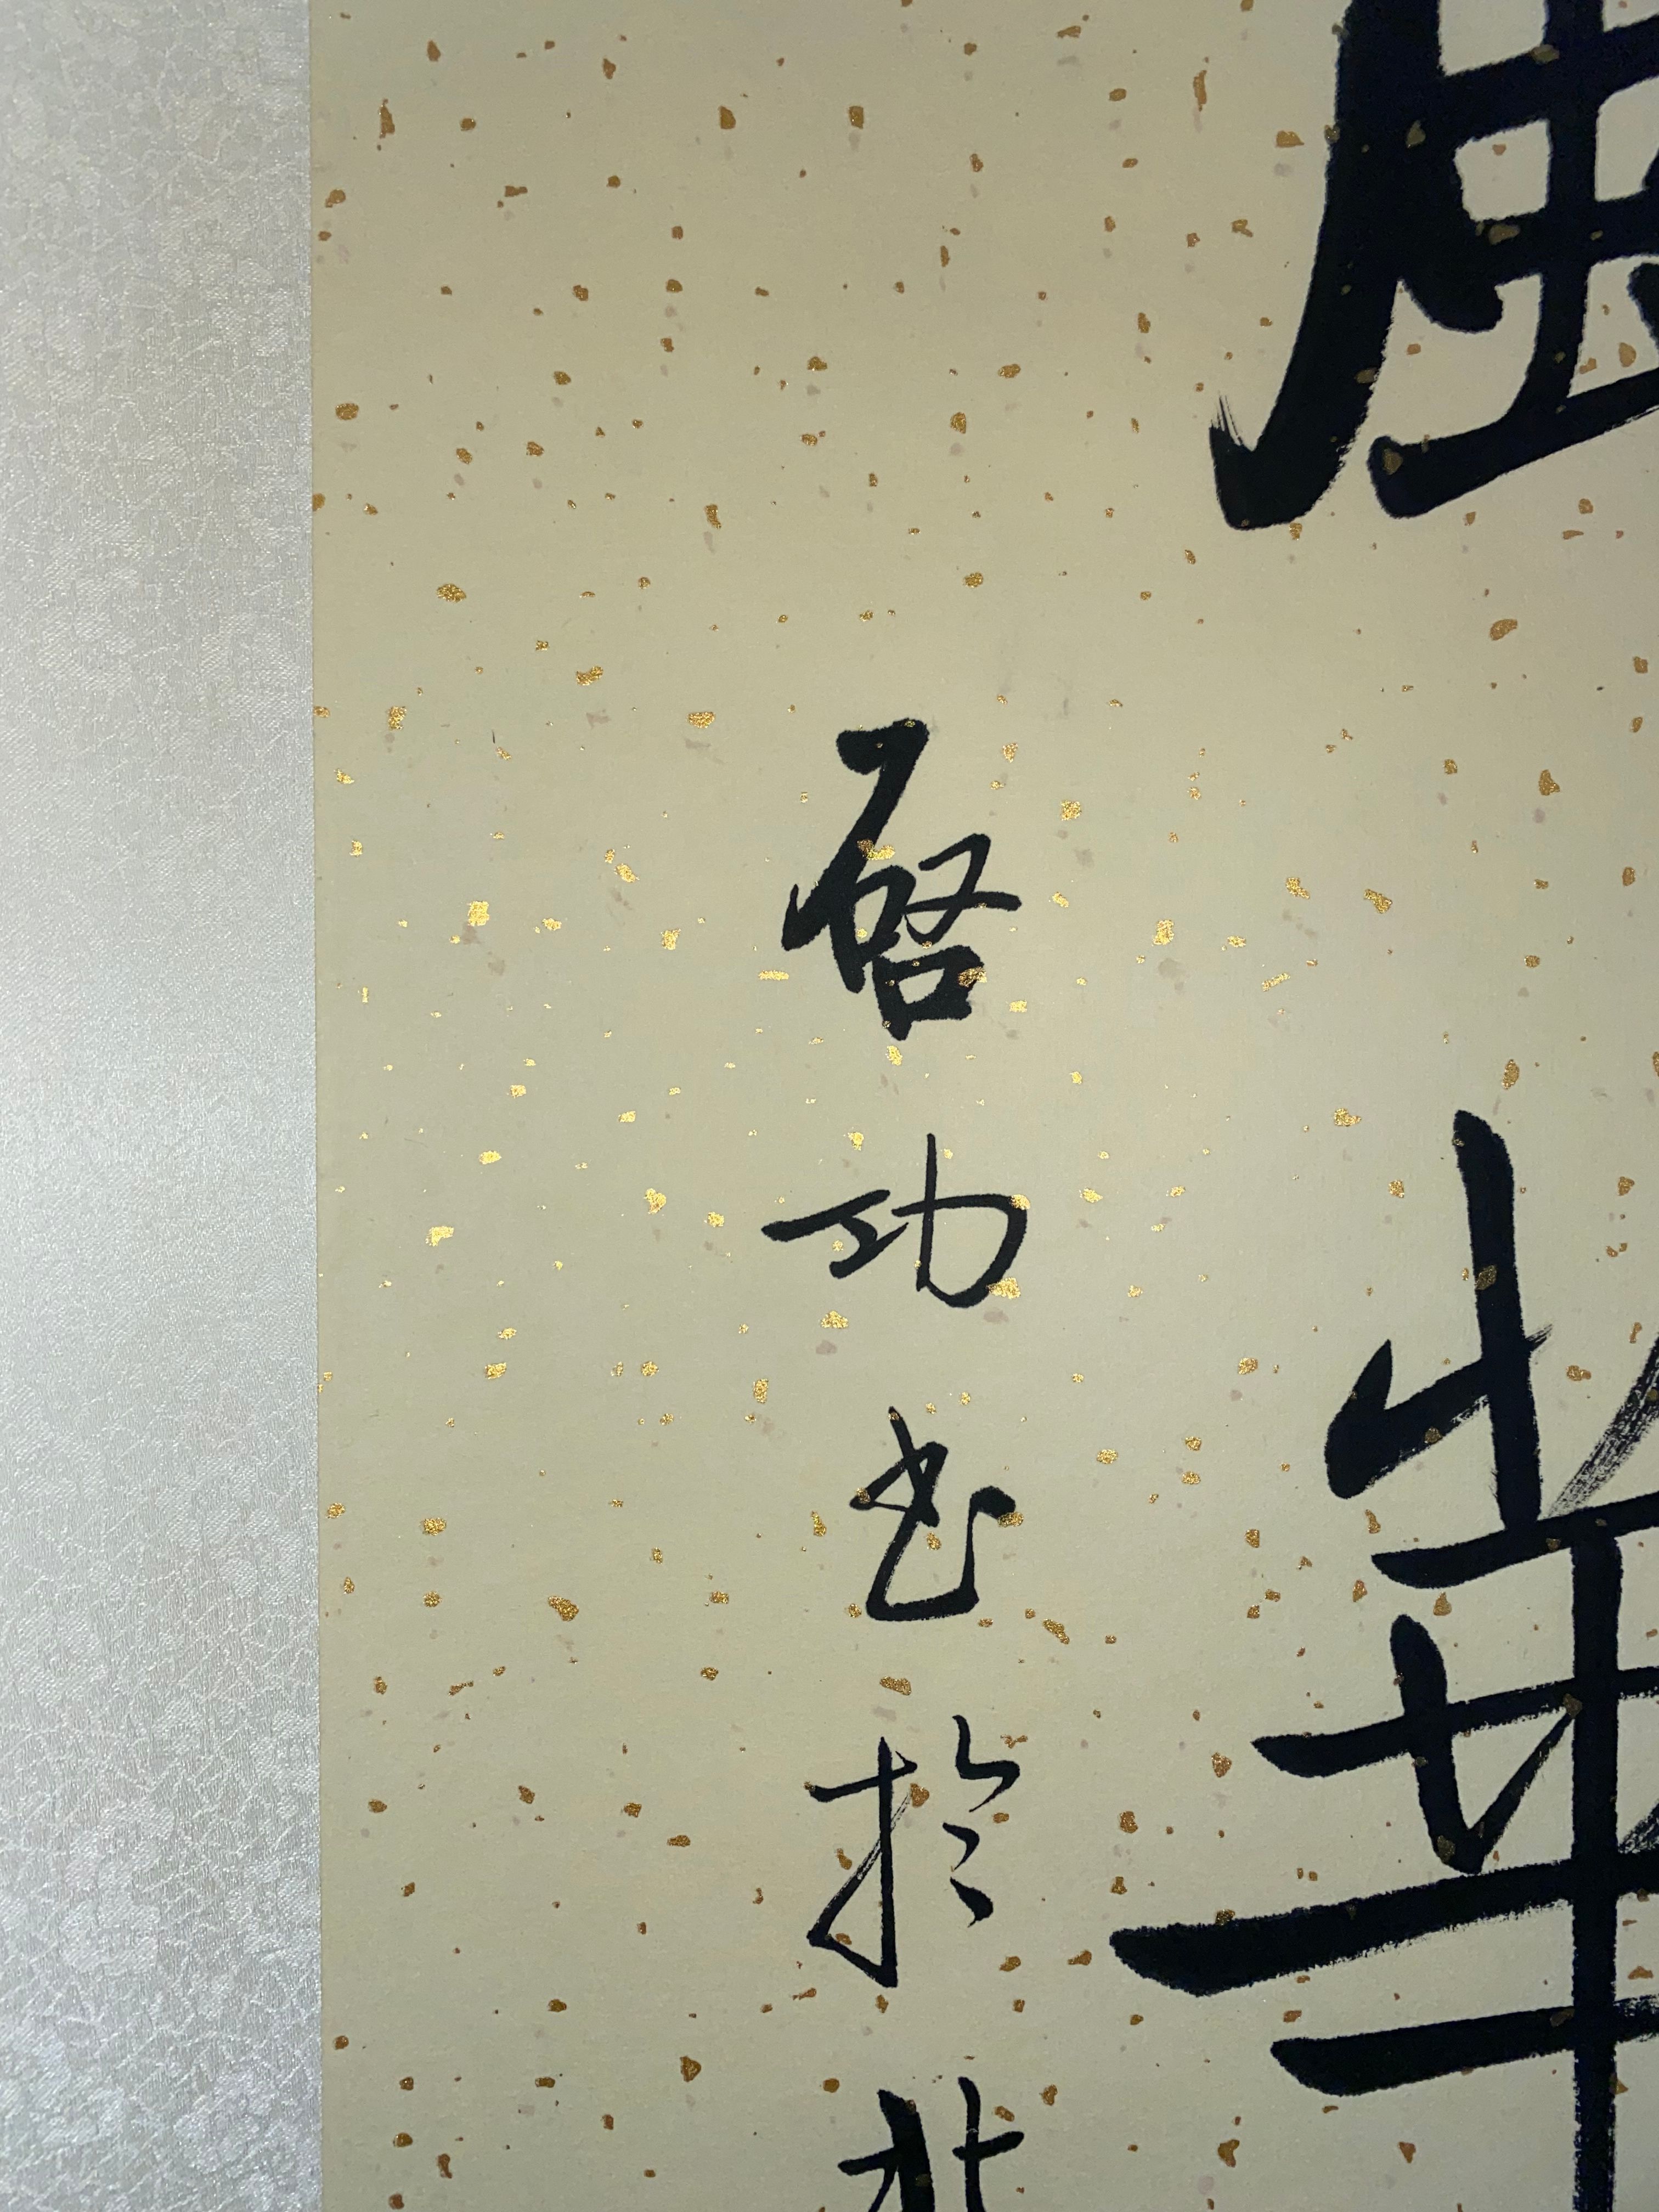 風華
啓功書於北